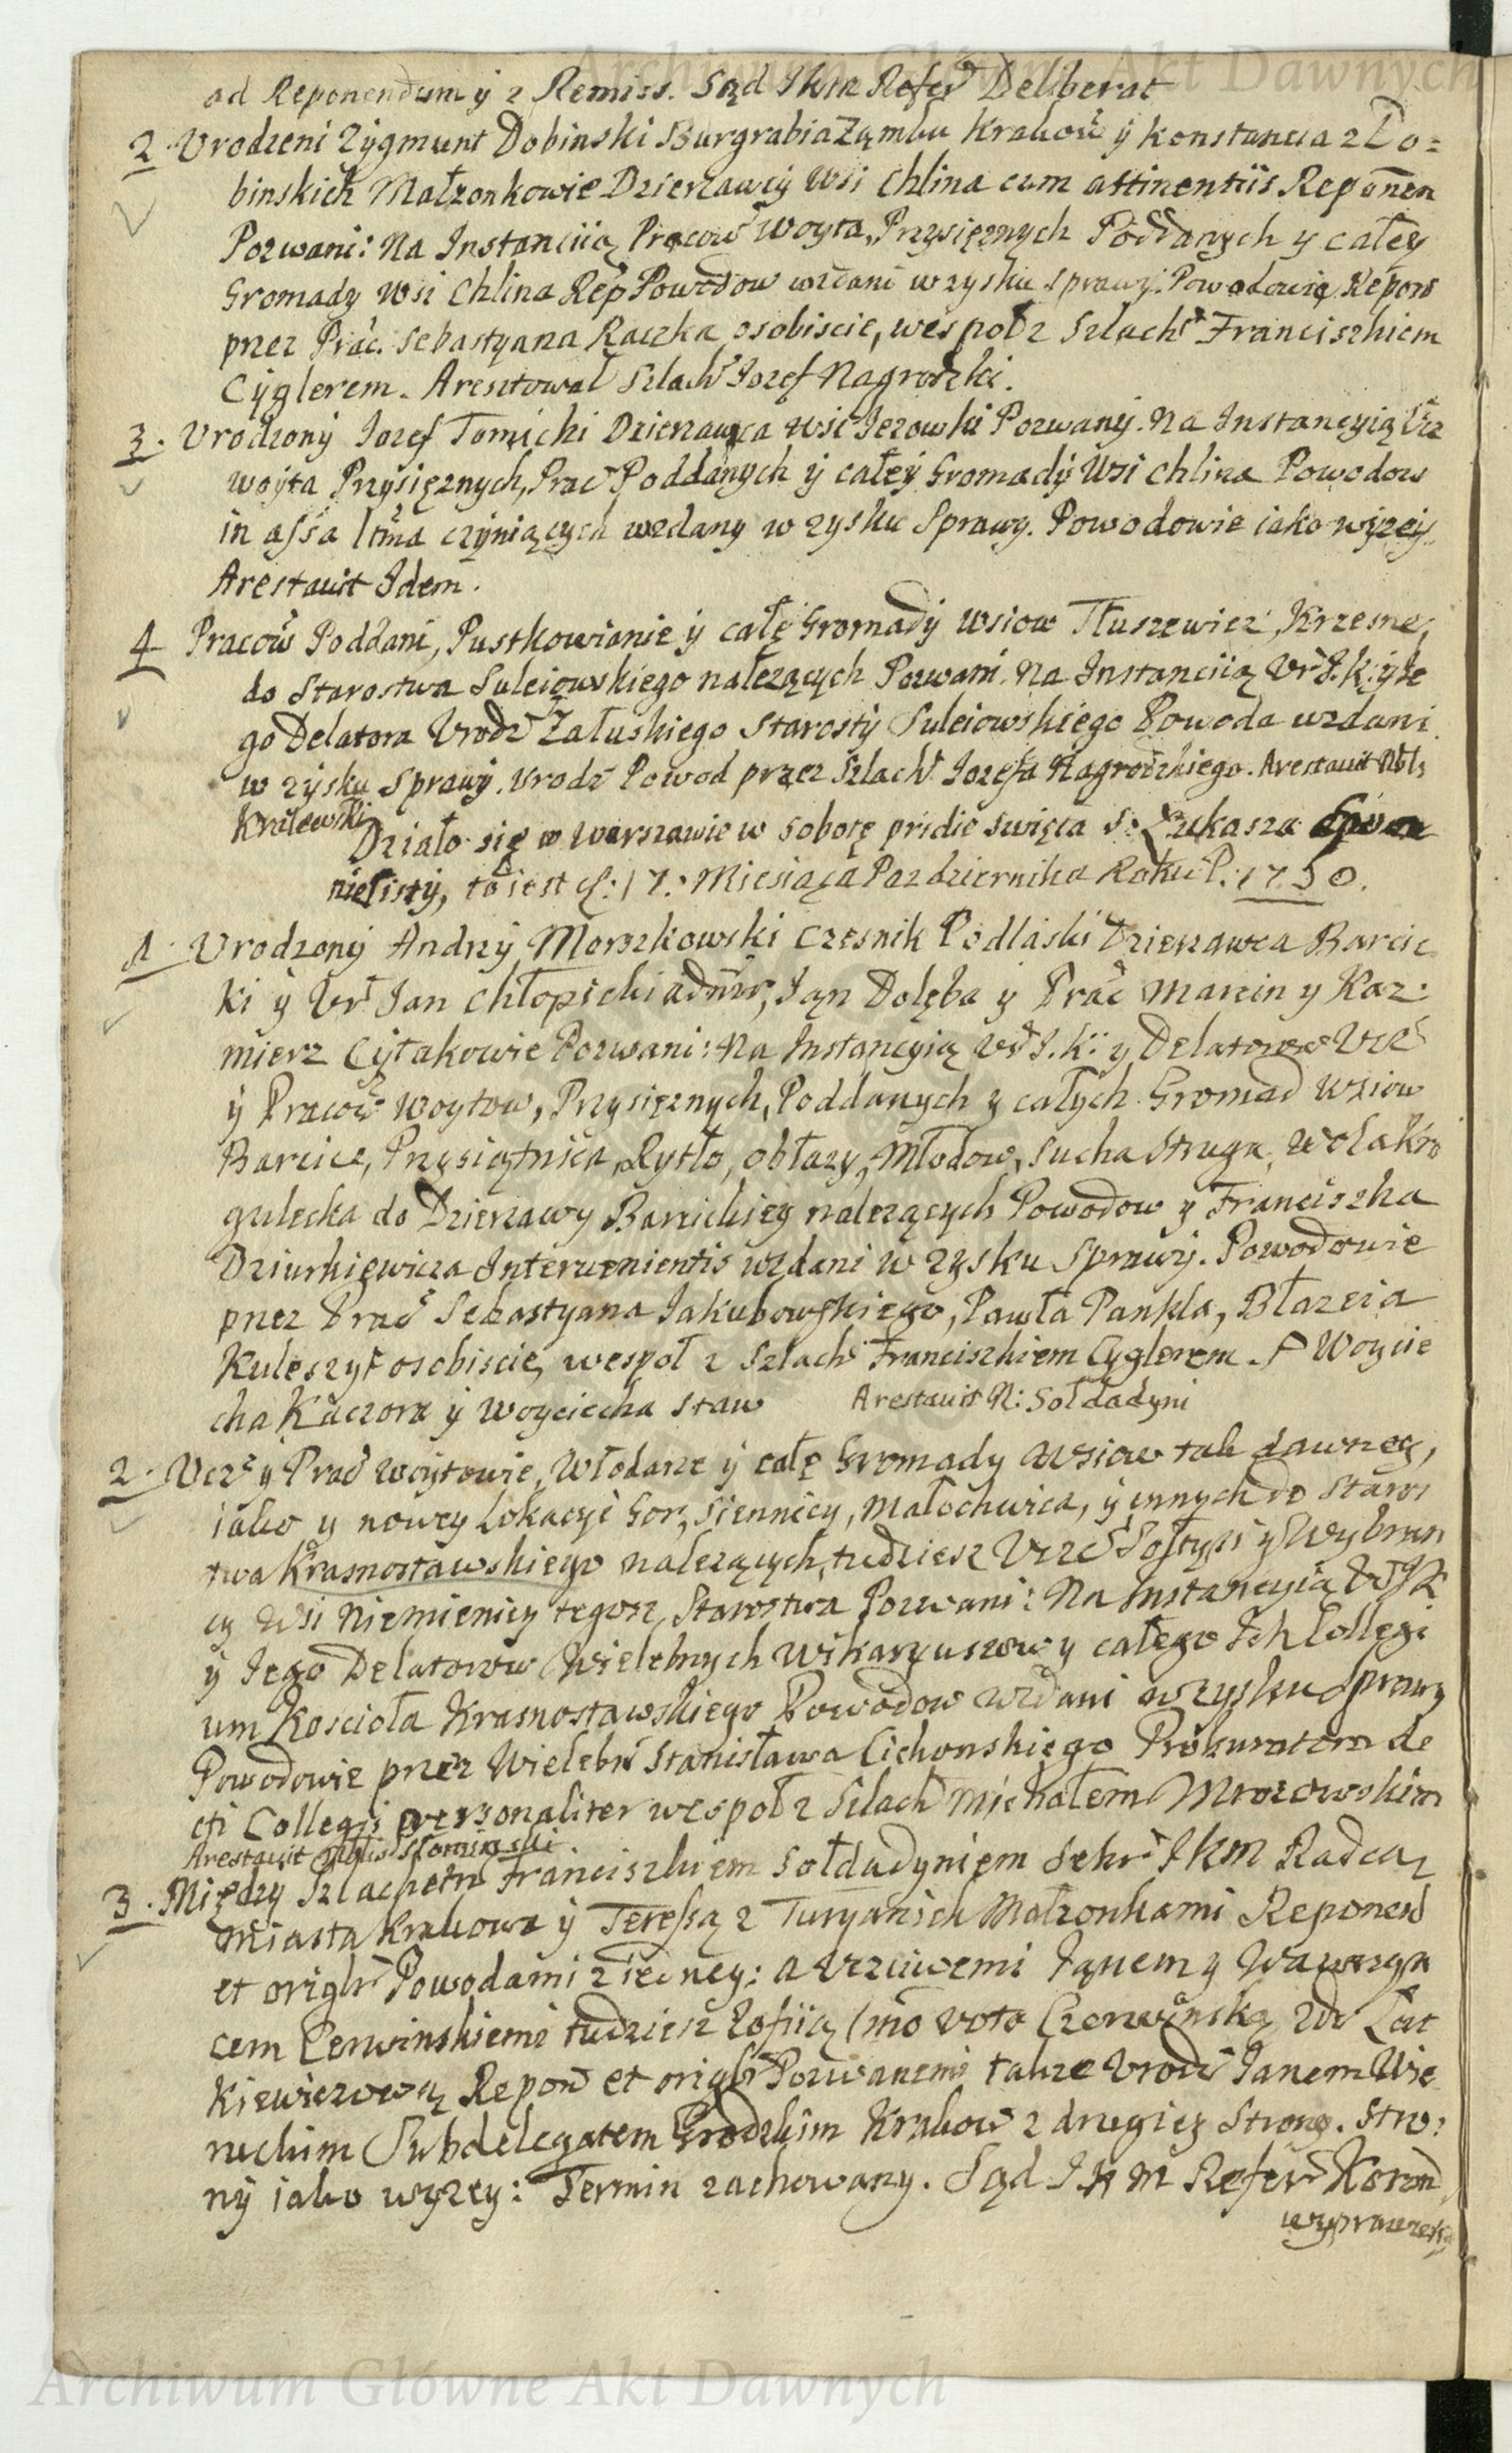 Archiwum Główne Akt Dawnych
ad Reponendum ÿ z Remiss. Sąd Jkm Refer Deliberat
2 Vrodzeni Zÿgmunt Dobinski Burgrabia Zamku Krakow ÿ Konstancia z Do=
binskich Małzonkowie Dzierzawcÿ Wsi Chlina cum attinentiis Reponen
Pozwani: Na Instanciią Pracow Woyta, Przysięznych Poddanych y całey
Gromady Wsi Chlina Rep Powodow wzdani w zysku sprawÿ. Powodowie Repons
przez Prac. Sebastyana Raczka osobiscie, wespoł z Szlach Franciszkiem
Cÿglerem. Aresztował Szlach Jozef Nagrodzki.
3. Vrodzonÿ Jozef Tomicki Dzierzawca Wsi Jezowki Pozwanÿ. Na Instancyią Vcz
woÿta Przÿsięznych, Prac Poddanych ÿ całeÿ Gromadÿ Wsi Chlina Powodow
in assa ltma czÿniących wzdany w zysku Sprawy. Powodowie iako wÿzeÿ.
Arestavit Idem.
4 Pracow Poddani, Pustkowianie ÿ całę Gromadÿ Wsiow Tłuszewiez, Krzesne,
do Starostwa Suleiowskiego nalezących Pozwani. Na Instanciią Vr J. K. ÿ Je
go Delatora Vrodz Załuskiego Starostÿ Suleiowskiego Powoda wzdani
w zÿsku Sprawÿ. Vrodz Powod przez Szlach Jozefa Nagrodzkiego. Arestavit Nbls
Kralewski
Działo się w Warszawie w Sobotę pridie swięta S: Łukasza
to iest d: 17. Miesiąca Pazdziernika Roku P. 1750.
1. Vrodzonÿ Andrzÿ Morzkowski Czesnik Podlaski Dzierzawca Barcic
ki ÿ Vr Jan Chłopicki admr, Jan Dolęba ÿ Prac Marcin y Kaz.
mierz Cÿłakowie Pozwani: Na Instancyią Vr J. K: y Delatorow Vcz
ÿ Pracow Woytow, Przysięznych, Poddanych y całych Gromad Wsiow
Barcice, Przysiętnica, Rytło, obłazy, Młodow, Sucha Struga, Wola Kro
gulecka do Dzierzawy Barcickiey nalezących Powodow y Franciszka
Dziurkiewicza Intervenientis wzdani w zysku Sprawÿ. Powodowie
przez Prac Sebastyana Jakubowskiego, Pawła Pankla, Błazeia
Kuleszył osobiscie, wespoł z Szlach Franciszkiem Cyglerem. Woycie
cha Kaczora ÿ Woyciecha Staw Arestavit N: Sołdadyni
2. Vcz ÿ Prac Woÿtowie, Włodarze ÿ całę Gromady Wsiow tak dawney,
iako y nowey Lokacyi Gor, Siennicy, Małochwica, ÿ innych do Staros
twa Krasnostawskiego nalezących, tudziesz Vczc Sołtysi y Wybran
cy Wsi Niemienicy tegosz Starostwa Pozwani: Na Instancyią Vr JK
ÿ Jego Delatorow Wielebnych Wikaryuszow y całego Ich Collegi
um Kosciola Krasnostawskiego Powodow wzdani w zysku Sprawy
Powodowie przez Wielebn Stanisława Cichonskiego Prokuratora de
cti Collegÿ personaliter wespoł z Szlach Michałem Mrozowskim
Arestavit Nblis Słominski
3. Między Szlachetn Franciszkiem Sołdadyniem Sekr JKM Radcą
Miasta Krakowa ÿ Teressą z Turyanich Małzonkami Reponen
et origlr Powodami z iedney: a Vczciwemi Janem y Wawrzyn
cem Cerwinskiemi tudziesz Zofiią 1mo voto Czerwinską 2do Łat
kiewiczową Repon et origlr Pozwanemi takze Vrodz Janem Wie
ruckim Subdelegatem Grodzkim Krakow z drugiey Strony. Stro:
nÿ iako wyzey: Termin zachowany. Sąd J K M Refer Koron
Archiwum Główne Akt Dawnych